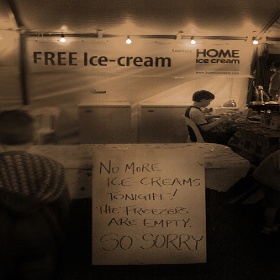 FREE Ice-cream
HOME
ice cream
No MORE
ICE CREAMS
TONIGHT!
THE FREEZERS
ARE EMPTY.
SO SORRY